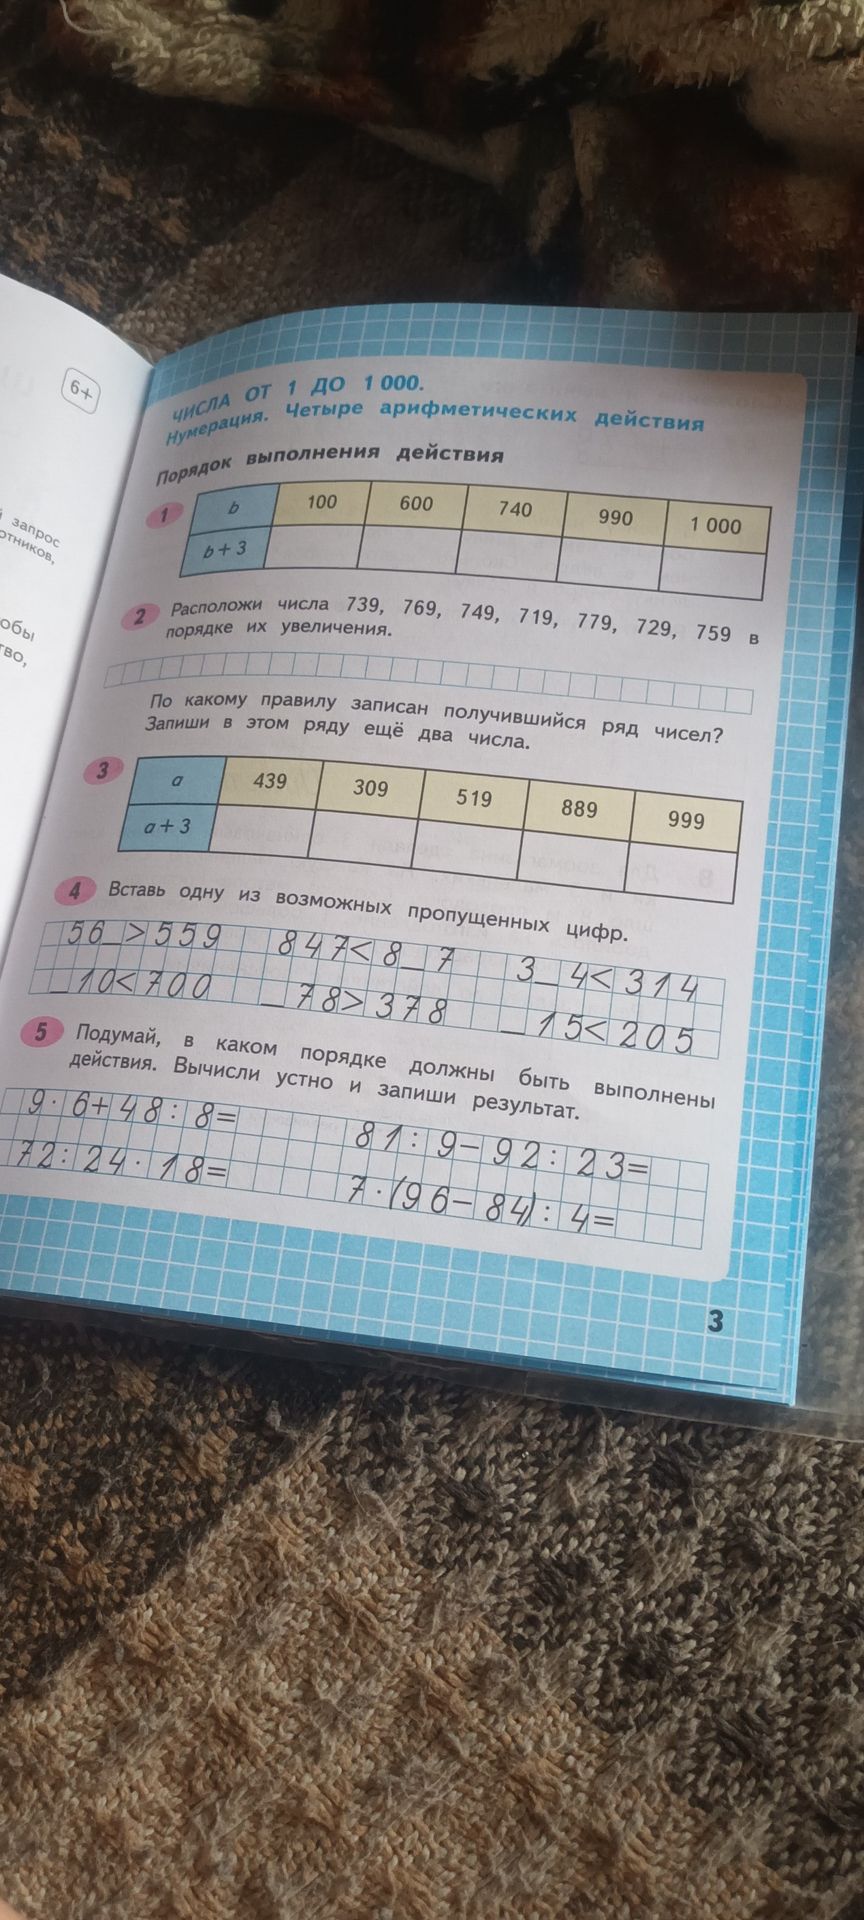 6+
запрос
отников,
ЧИСЛА ОТ 1 ДО 1 000.
Нумерация. Четыре арифметических действия
Порядок выполнения действия
1
b 100 600 740 990 1 000
b + 3
2 Расположи числа 739, 769, 749, 719, 779, 729, 759 в
порядке их увеличения.
По какому правилу записан получившийся ряд чисел?
Запиши в этом ряду ещё два числа.
3
a 439 309 519 889 999
a + 3
4 Вставь одну из возможных пропущенных цифр.
56_>559 847<8_7 3_4<314
_10<700 _78>378 _15<205
5 Подумай, в каком порядке должны быть выполнены
действия. Вычисли устно и запиши результат.
9·6+48:8= 81:9-92:23=
72:24·18= 7·(96-84):4=
3